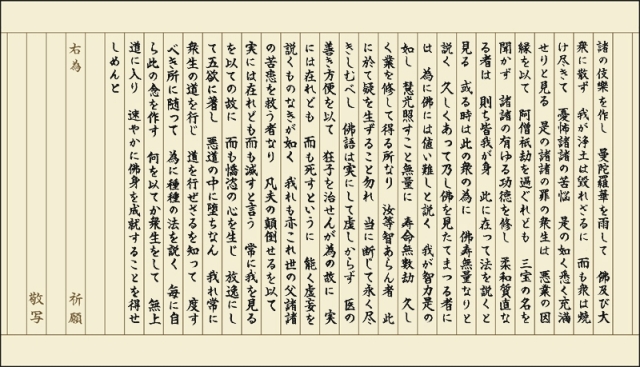 諸の伎樂を作し　曼陀羅華を雨して　佛及び大
衆に散ず　我が浄土は毀れざるに　而も衆は焼
け尽きて　憂怖諸諸の苦悩　是の如く悉く充満
せりと見る　是の諸諸の罪の衆生は　悪業の因
縁を以て　阿僧祇劫を過ぐれども　三宝の名を
聞かず　諸諸の有ゆる功徳を修し　柔和質直な
る者は　則ち皆我が身　此に在って法を説くと
見る　或る時は此の衆の為に　佛寿無量なりと
説く　久しくあって乃し佛を見たてまつる者に
は　為に佛には値い難しと説く　我が智力是の
如し　慧光照すこと無量に　寿命無数劫　久し
く業を修して得る所なり　汝等智あらん者　此
に於て疑を生ずること勿れ　当に断じて永く尽
きしむべし　佛語は実にして虚しからず　医の
善き方便を以て　狂子を治せんが為の故に　実
には在れども　而も死すというに　能く虚妄を
説くものなきが如く　我れも亦これ世の父諸諸
の苦患を救う者なり　凡夫の顛倒せるを以て
実には在れども而も滅すと言う　常に我を見る
を以ての故に　而も憍恣の心を生じ　放逸にし
て五欲に著し　悪道の中に堕ちなん　我れ常に
衆生の道を行じ　道を行ぜざるを知って　度す
べき所に随って　為に種種の法を説く　毎に自
ら此の念を作す　何を以てか衆生をして　無上
道に入り　速やかに佛身を成就することを得せ
しめんと
右為　祈願
敬写